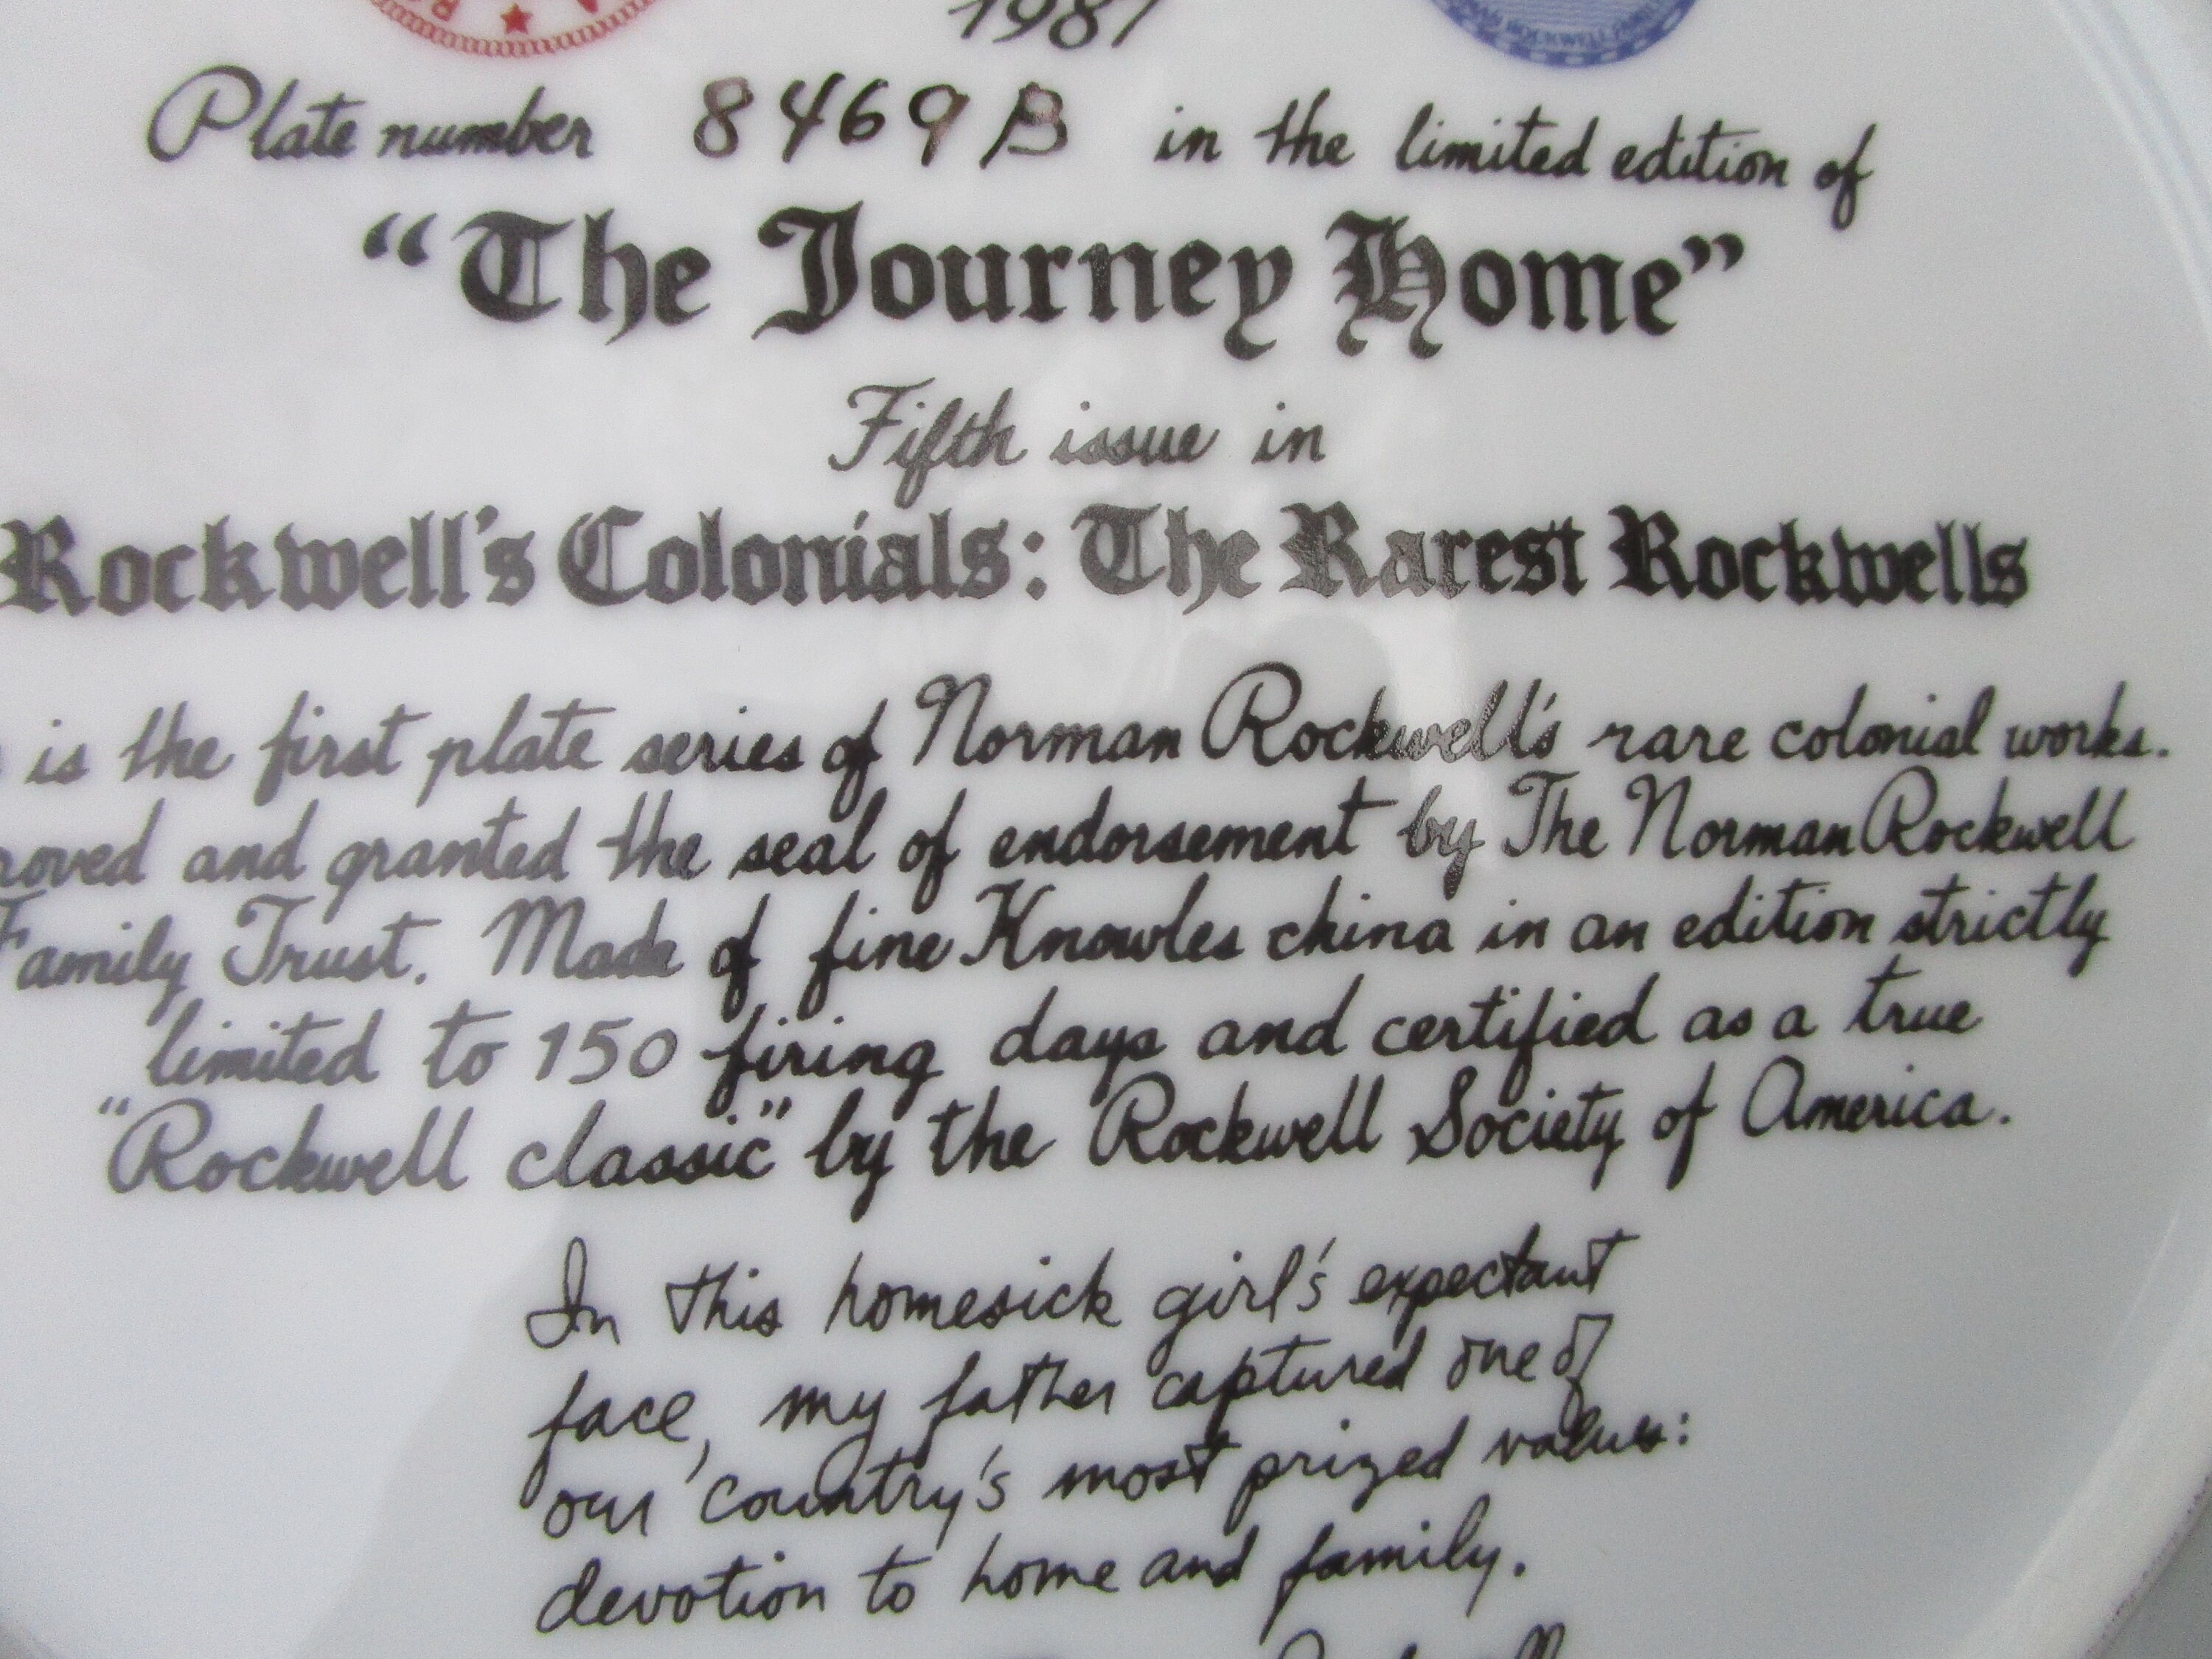 1987
Plate number 8469B in the limited edition of
"The Journey Home"
Fifth issue in
Rockwell's Colonials: The Rarest Rockwells
is the first plate series of Norman Rockwell's rare colonial works.
roved and granted the seal of endorsement by The Norman Rockwell
Family Trust. Made of fine Knowles china in an edition strictly
limited to 150 firing days and certified as a true
"Rockwell classic" by the Rockwell Society of America.
In this homesick girl's expectant
face, my father captured one of
our country's most prized values:
devotion to home and family.